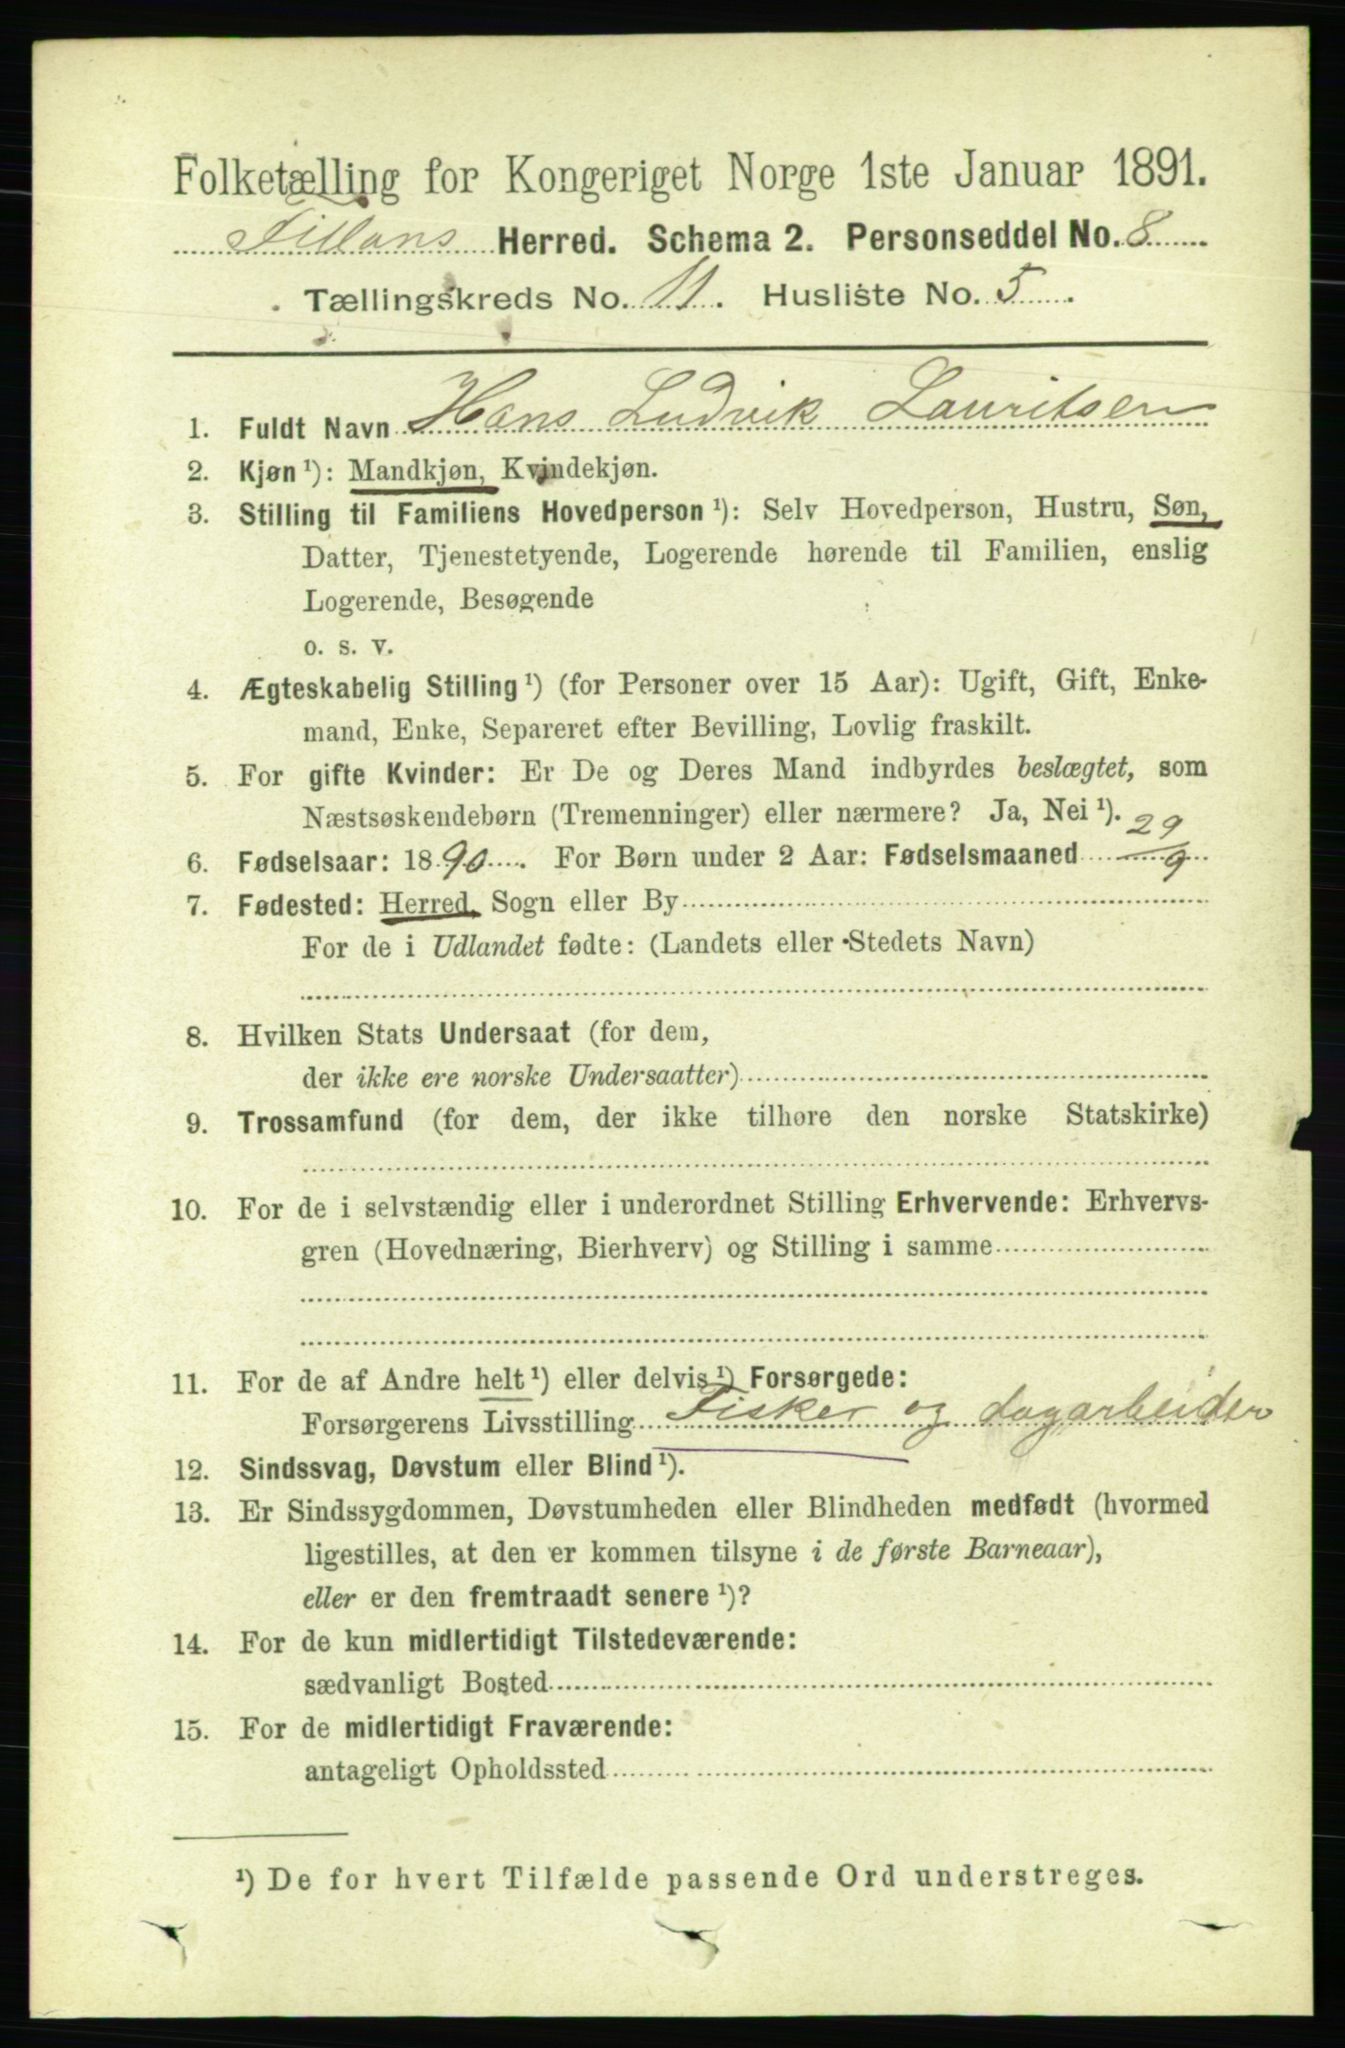 Folketælling for Kongeriget Norge 1ste Januar 1891.
Fillans Herred. Schema 2. Personseddel No. 8
Tællingskreds No. 11. Husliste No. 5.
1. Fuldt Navn Hans Ludvik Lauritsen
2. Kjøn ¹): Mandkjøn, Kvindekjøn.
3. Stilling til Familiens Hovedperson ¹): Selv Hovedperson, Hustru, Søn,
Datter, Tjenestetyende, Logerende hørende til Familien, enslig
Logerende, Besøgende
o. s. v.
4. Ægteskabelig Stilling ¹) (for Personer over 15 Aar): Ugift, Gift, Enke-
mand, Enke, Separeret efter Bevilling, Lovlig fraskilt.
5. For gifte Kvinder: Er De og Deres Mand indbyrdes beslægtet, som
Næstsøskendebørn (Tremenninger) eller nærmere? Ja, Nei ¹).
6. Fødselsaar: 1890. For Børn under 2 Aar: Fødselsmaaned 29/9
7. Fødested: Herred, Sogn eller By
For de i Udlandet fødte: (Landets eller Stedets Navn)
8. Hvilken Stats Undersaat (for dem,
der ikke ere norske Undersaatter)
9. Trossamfund (for dem, der ikke tilhøre den norske Statskirke)
10. For de i selvstændig eller i underordnet Stilling Erhvervende: Erhvervs-
gren (Hovednæring, Bierhverv) og Stilling i samme
11. For de af Andre helt ¹) eller delvis ¹) Forsørgede:
Forsørgerens Livsstilling Fisker og dagarbeider
12. Sindssvag, Døvstum eller Blind ¹).
13. Er Sindssygdommen, Døvstumheden eller Blindheden medfødt (hvormed
ligestilles, at den er kommen tilsyne i de første Barneaar),
eller er den fremtraadt senere ¹)?
14. For de kun midlertidigt Tilstedeværende:
sædvanligt Bosted
15. For de midlertidigt Fraværende:
antageligt Opholdssted
¹) De for hvert Tilfælde passende Ord understreges.